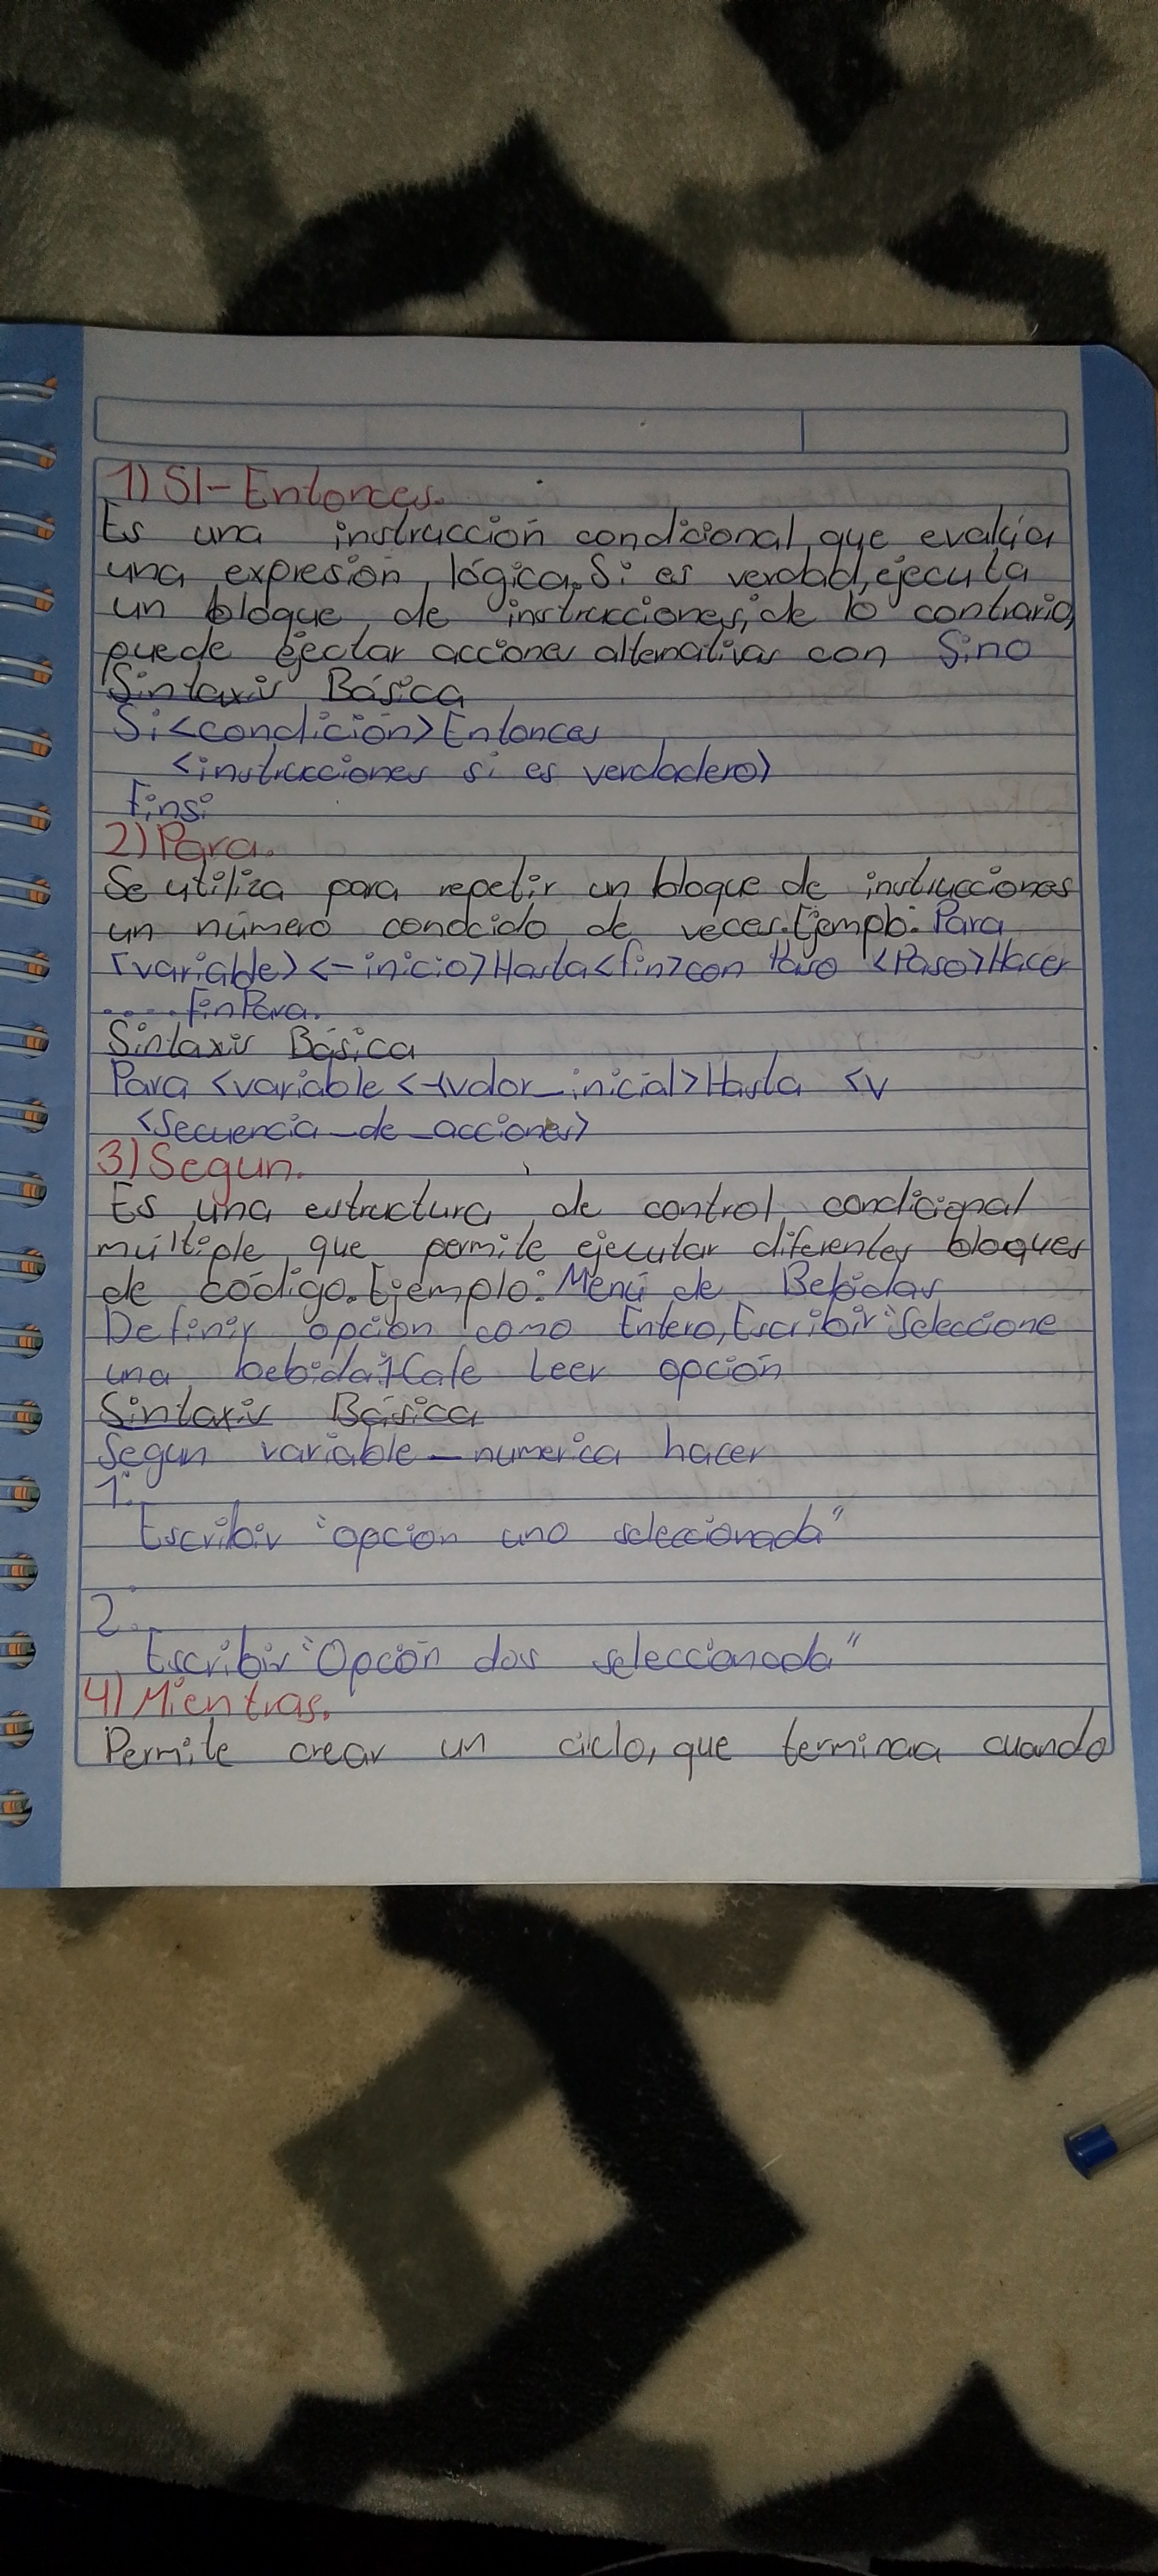 1) SI-Entonces.
Es una instrucción condicional, que evalúa
una expresión lógica. Si es verdad, ejecuta
un bloque de instrucciones, de lo contrario,
puede ejectar acciones alternativas con Sino
Sintaxis Básica
Si <condición> Entonces
<instrucciones si es verdadero>
FinSi
2) Para.
Se utiliza para repetir un bloque de instrucciones
un número conocido de veces. Ejemplo: Para
<variable> <- inicio> Hasta <fin> con Paso <Paso> Hacer
..... finPara.
Sintaxis Básica
Para <variable <-<valor_inicial> Hasta <v
<Secuencia_de_acciones>
3) Segun.
Es una estructura de control condicional
múltiple que permite ejecutar diferentes bloques
de código. Ejemplo: Menú de Bebidas
Definir opcion como Entero, Escribir "Seleccione
una bebida: 1 Cafe Leer opción
Sintaxis Básica
Segun variable_numerica hacer
1:
Escribir "opcion uno seleccionada"
2:
Escribir "Opción dos seleccionada"
4) Mientras.
Permite crear un ciclo, que terminaa cuando